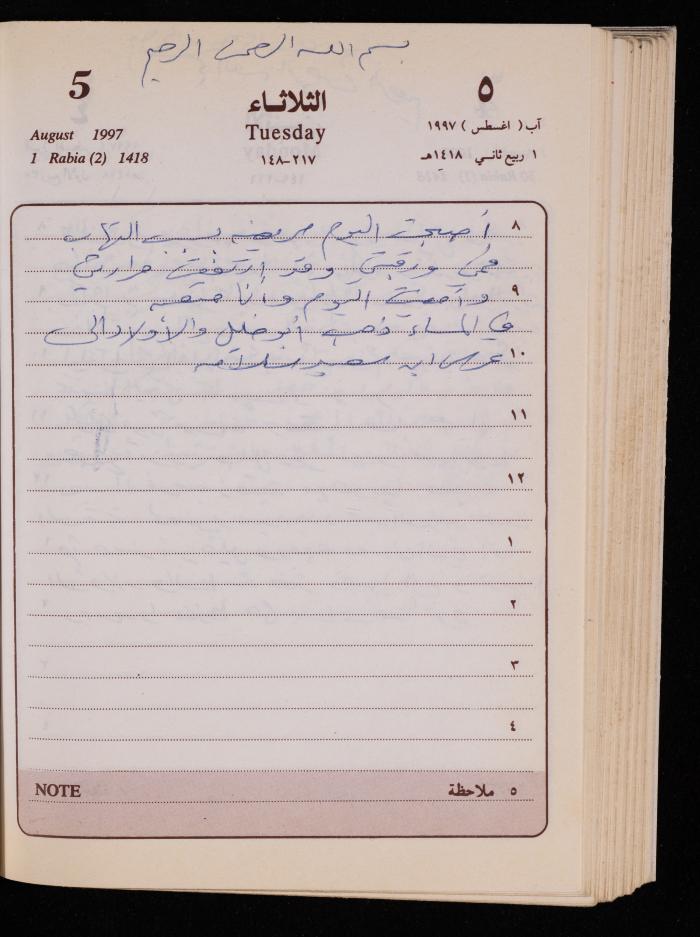 بسم الله الرحمن الرحيم
5 الثلاثاء ٥
August 1997 Tuesday آب ( اغسطس ) ١٩٩٧
1 Rabia (2) 1418 ١٤٨-٢١٧ ١ ربيع ثاني ١٤١٨هـ
٨ أصبحت اليوم مريضة بسبب التهاب
فمي ورقبتي وقد ارتفعت حرارتي
٩ وأمضيت اليوم وأنا متعبه
في المساء ذهب أبو خليل والأولاد الى
١٠ عرس ابن سعيد سلامه
١١
١٢
١
٢
٣
٤
NOTE ٥ ملاحظة